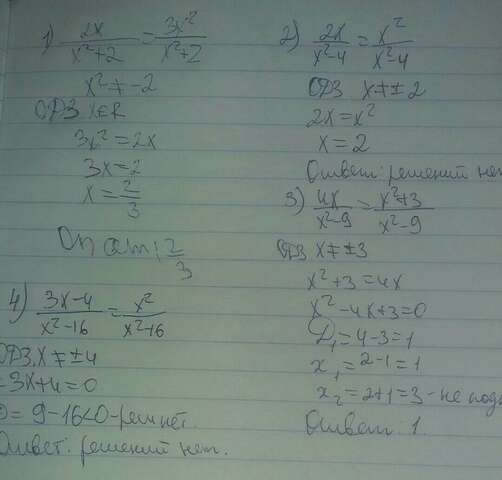 1) 2x/(x²+2) = 3x²/(x²+2)
x² ≠ -2
ОДЗ x∈R
3x² = 2x
3x = 2
x = 2/3
2/3
2) 2x/(x²-4) = x²/(x²-4)
ОДЗ x ≠ ± 2
2x = x²
x = 2
Ответ: решений нет
3) 4x/(x²-9) = (x²+3)/(x²-9)
ОДЗ x ≠ ±3
x²+3 = 4x
x²-4x+3=0
D₁ = 4-3=1
x₁ = 2-1 = 1
x₂ = 2+1 = 3 - не
Ответ: 1.
4) (3x-4)/(x²-16) = x²/(x²-16)
ОДЗ. x ≠ ±4
-3x+4=0
= 9-16<0 - реш нет.
Ответ: решений нет.